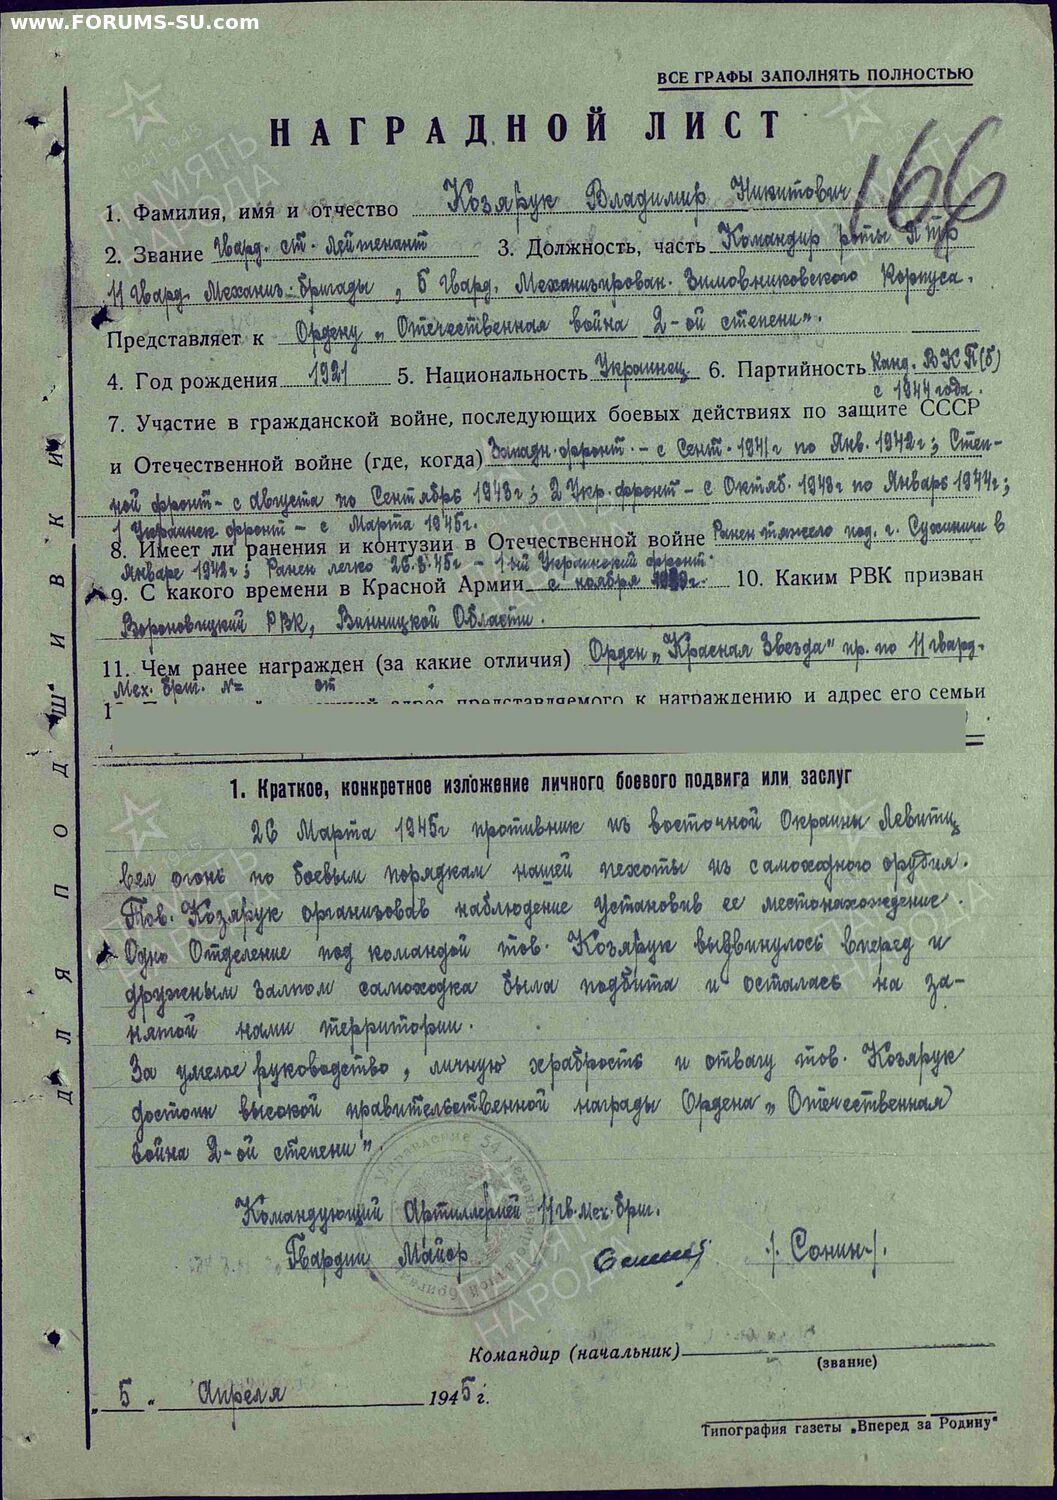 www.FORUMS-SU.com
ВСЕ ГРАФЫ ЗАПОЛНЯТЬ ПОЛНОСТЬЮ
НАГРАДНОЙ ЛИСТ
166
1. Фамилия, имя и отчество Козярук Владимир Никитович
2. Звание Гвард. ст. лейтенант 3. Должность, часть Командир роты ПТР
11 Гвард. Механиз. бригады, 5 Гвард. Механизирован. Зимовниковского Корпуса.
Представляет к Ордену „Отечественная война 2-ой степени".
4. Год рождения 1921 5. Национальность Украинец 6. Партийность Канд. ВКП(б)
с 1944 года.
7. Участие в гражданской войне, последующих боевых действиях по защите СССР
и Отечественной войне (где, когда) Западн. фронт - с Сент. 1941г по Янв. 1942г; Степ-
ной фронт - с августа по Сентябрь 1943г; 2 Укр. фронт - с Октяб. 1943г по Январь 1944г;
1 Украинск фронт - с Марта 1945г.
8. Имеет ли ранения и контузии в Отечественной войне Ранен тяжело под. г. Сухиничи в
Январе 1942г; Ранен легко 26.3.45г - 1-ый Украинский фронт.
9. С какого времени в Красной Армии с ноября 10. Каким РВК призван
Вороновицкий РВК, Винницкой Области.
11. Чем ранее награжден (за какие отличия) Орден „Красная Звезда" пр. по 11 гвард.
Мех. бриг. № от
адрес представляемого к награждению и адрес его семьи
1. Краткое, конкретное изложение личного боевого подвига или заслуг
26 Марта 1945г противник из восточной Окраины Левитц
вел огонь по боевым порядкам нашей пехоты из самоходного орудия.
Тов. Козярук организовав наблюдение установив ее местонахождение.
Одно Отделение под командой тов. Козярук выдвинулось вперед и
дружным залпом самоходка была подбита и осталась на за-
нятой нами территории.
За умелое руководство, личную храбрость и отвагу тов. Козярук
достоин высокой правительственной награды Ордена „Отечественная
война 2-ой степени".
Командующий Артиллерией 11 гв. мех. бриг.
Гвардии Майор /Сонин/.
Командир (начальник)
(звание)
„ 5 " Апреля 1945 г.
Типография газеты „Вперед за Родину"
ДЛЯ ПОДШИВКИ
Управление 54 механизированной бригады
1941-1945
ПАМЯТЬ
НАРОДА